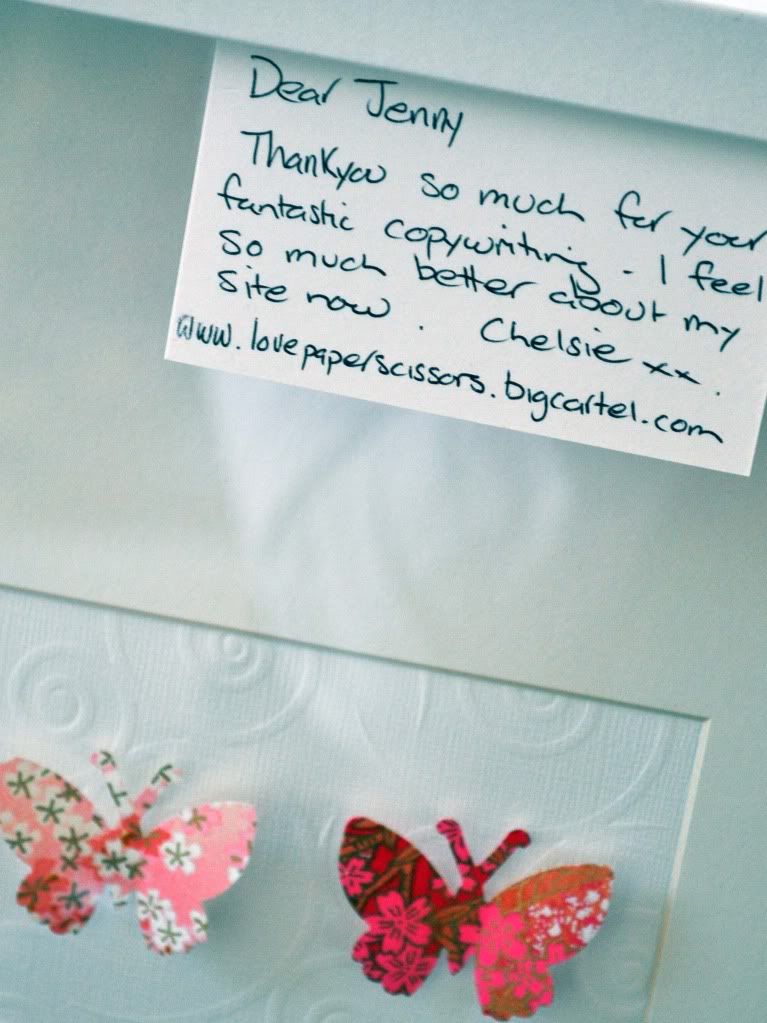 Dear Jenny
Thankyou so much for your
fantastic copywriting - I feel
so much better about my
site now. Chelsie xx.
www.lovepaperscissors.bigcartel.com